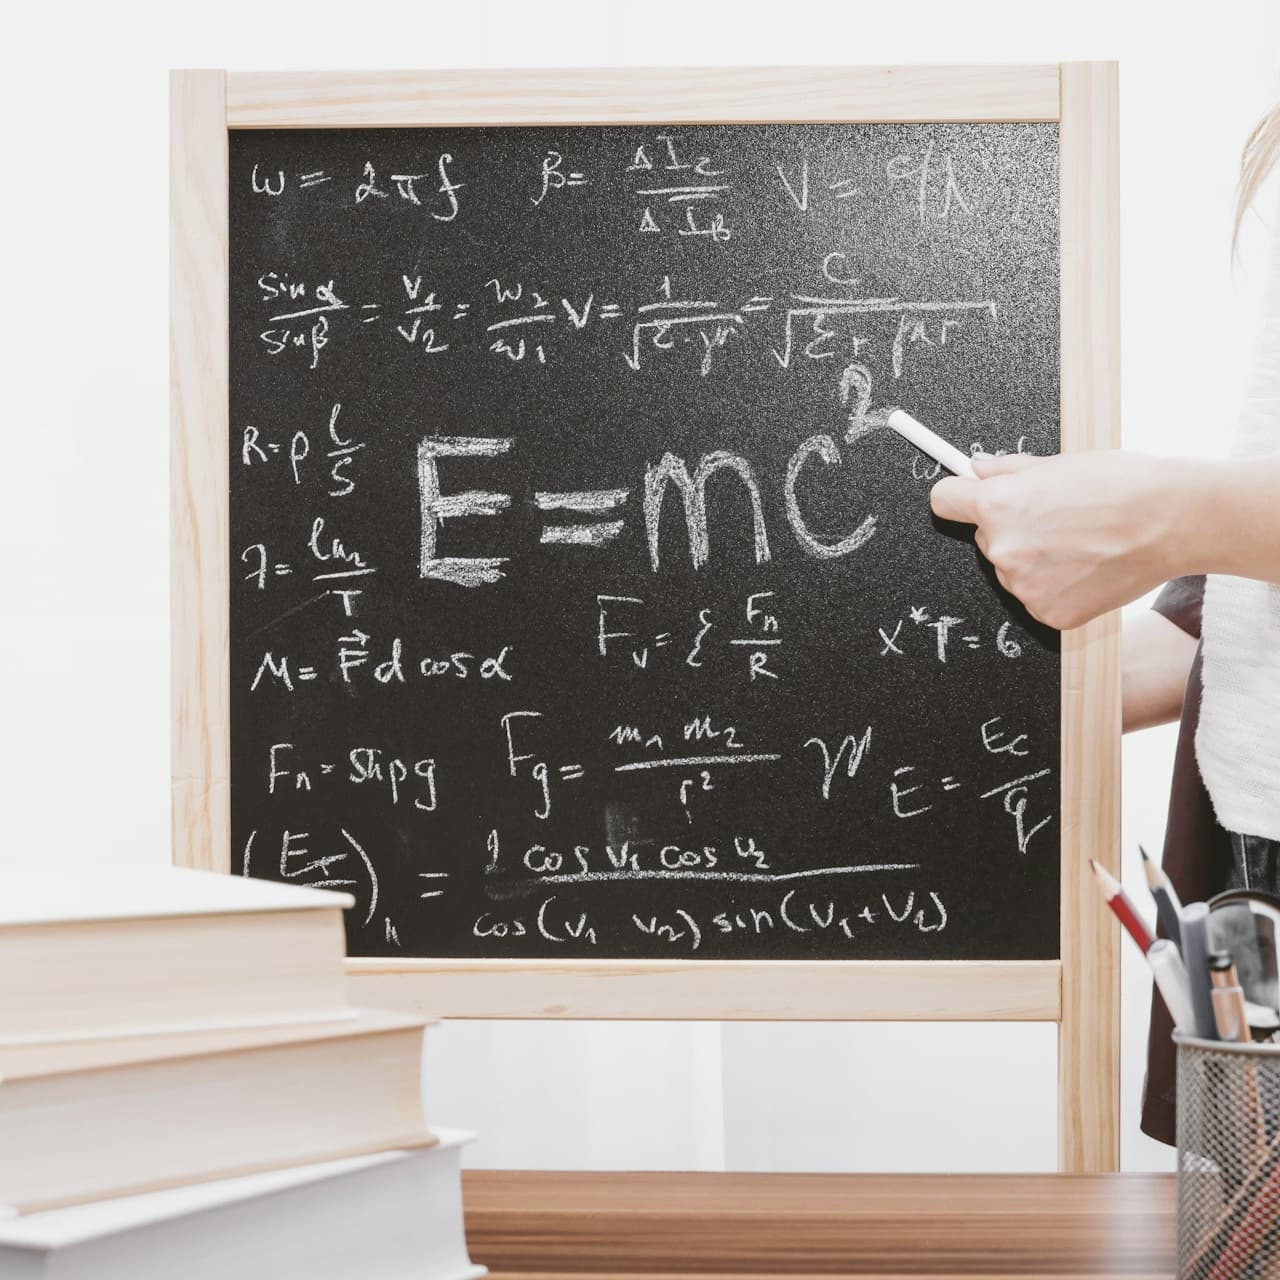 ω = 2πf β = ΔI_C / ΔI_B V =
sin α / sin β = v₁ / v₂ = w₂ / w₁ V = 1 / √ε·μ = C / √εr μr
R = ρ l / S
E = mc²
M = F⃗ d cos α F_v = ξ F_n / R x*T = 6
F_n = Shρg F_g = m₁ m₂ / r² E = E_C / q
= 2 cos v₁ cos v₂ / cos(v₁ v₂) sin(v₁ + v₂)